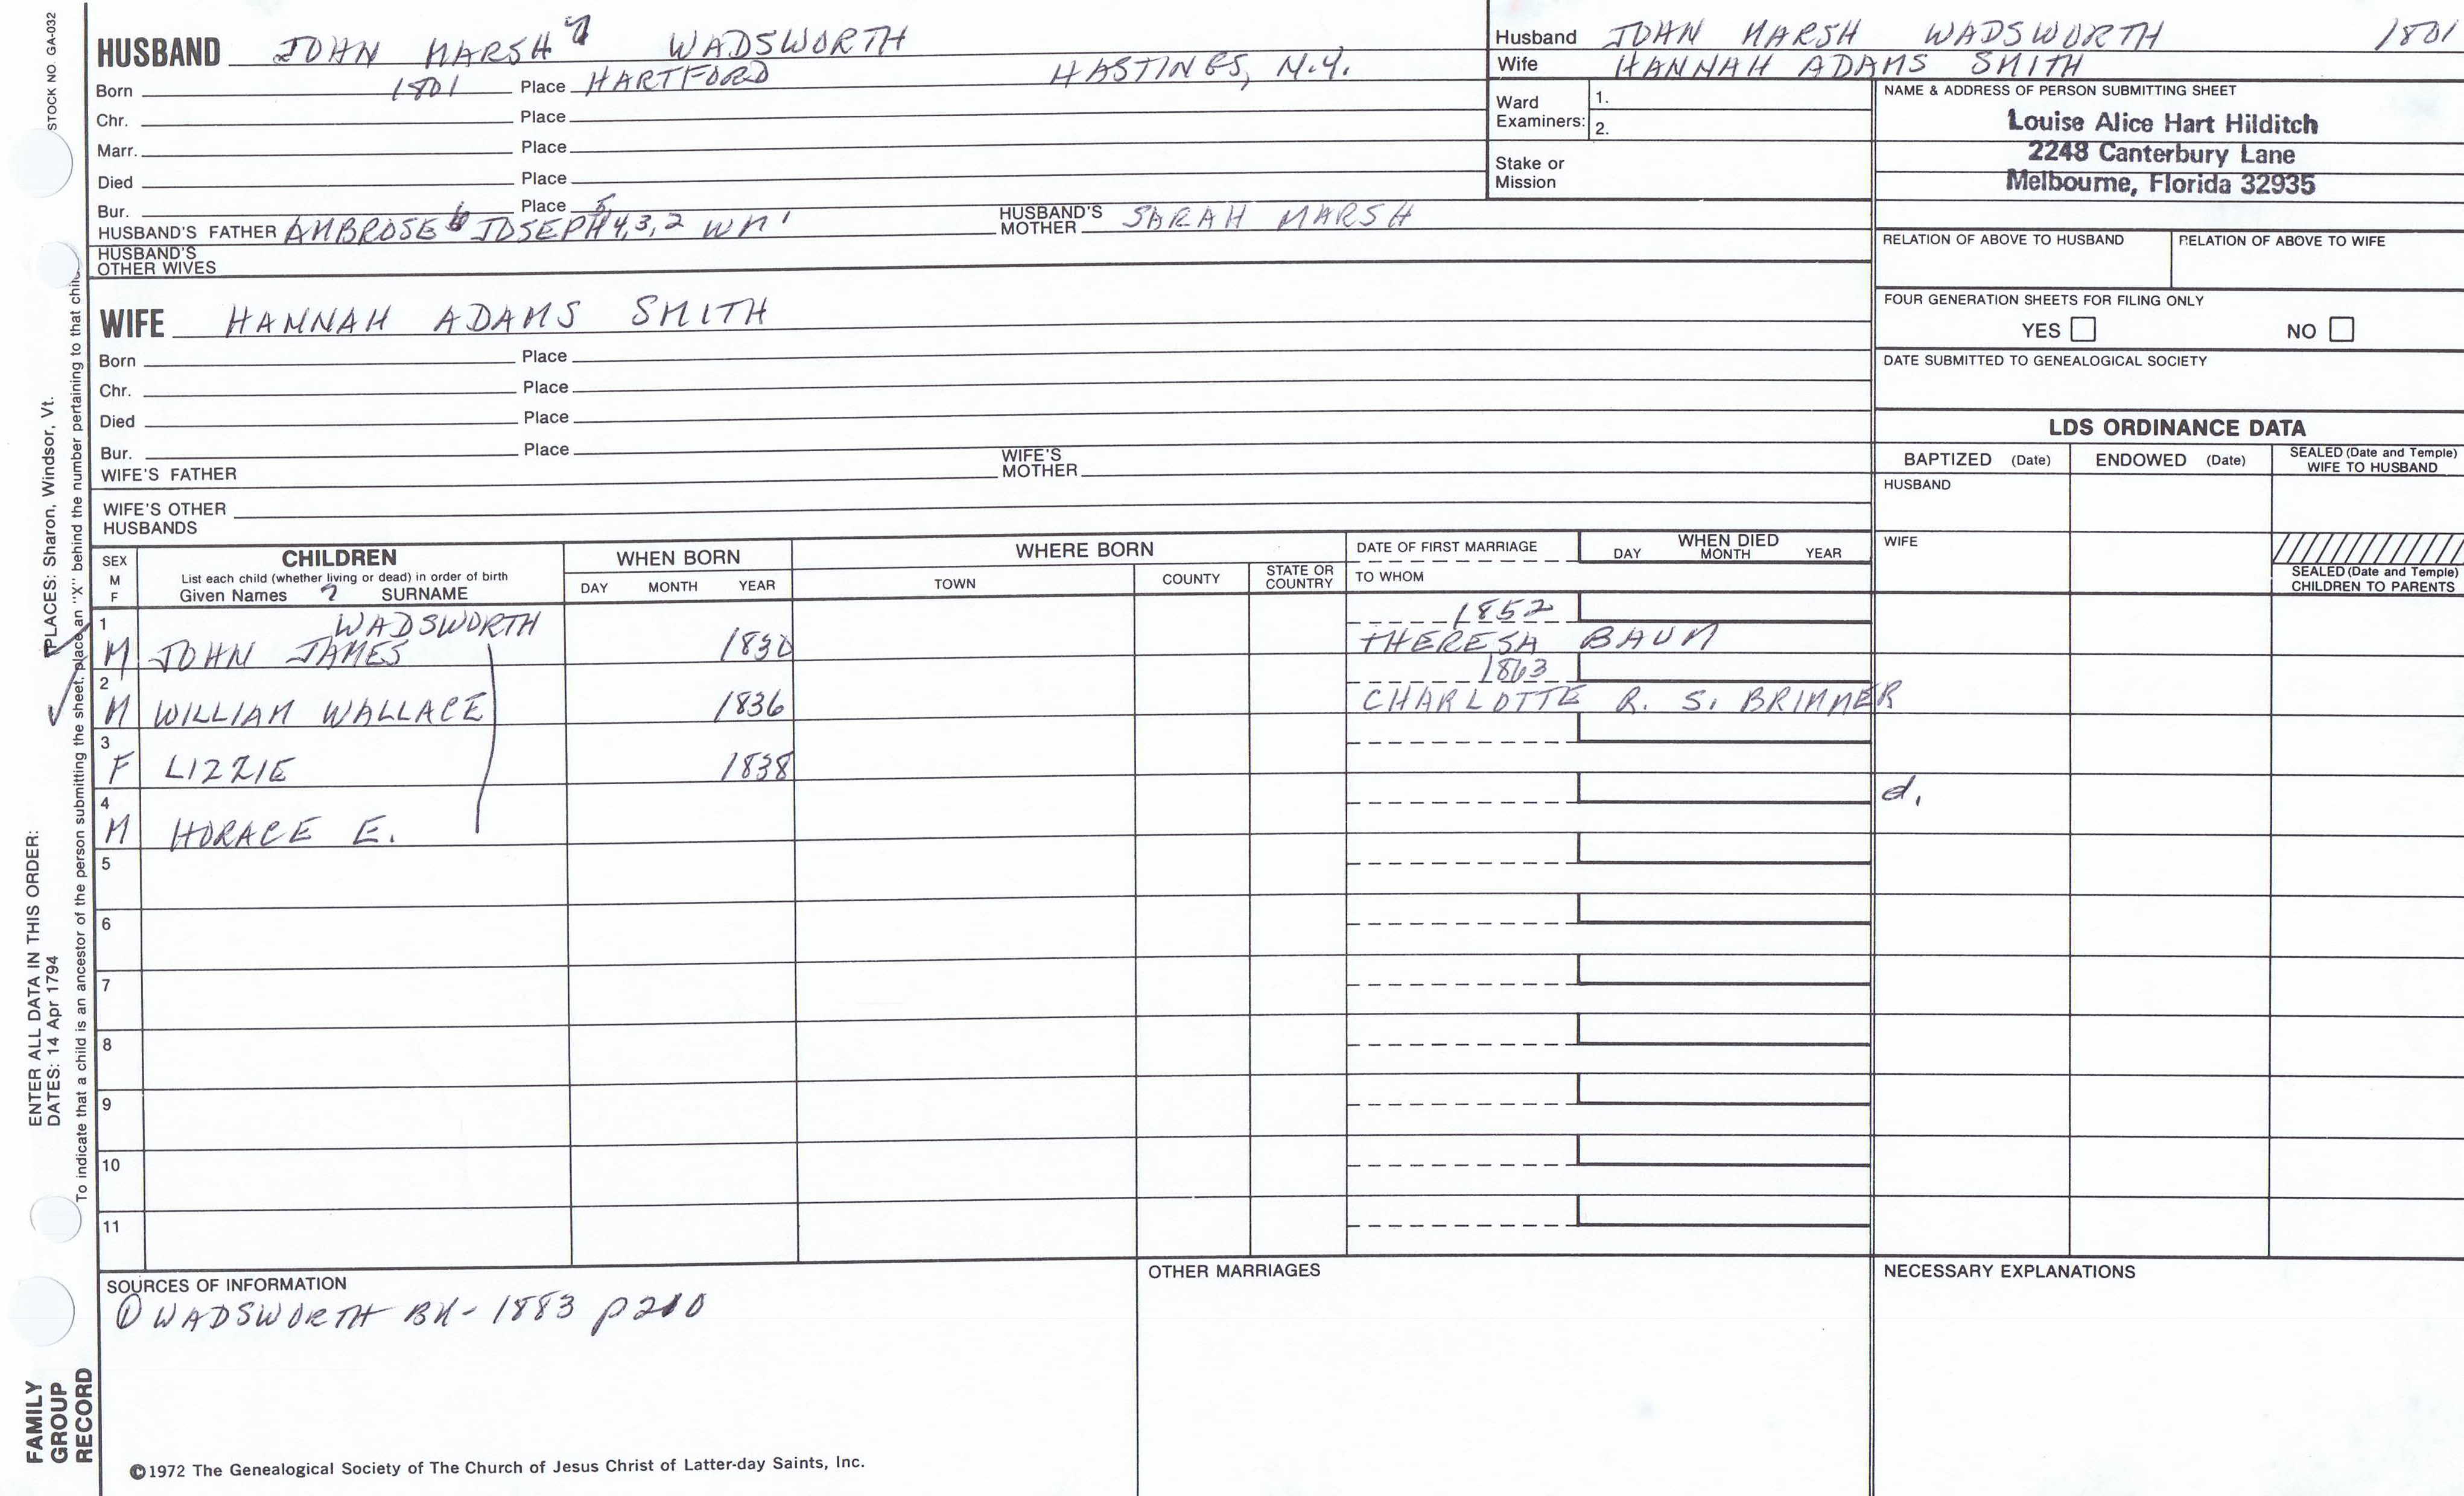 STOCK NO. GA-032
HUSBAND JOHN MARSH 7 WADSWORTH
Born 1801 Place HARTFORD HASTINGS, N.Y.
Chr. Place
Marr. Place
Died Place
Bur. Place
HUSBAND'S FATHER AMBROSE 6 JOSEPH 5,4,3,2 WM 1 HUSBAND'S MOTHER SARAH MARSH
HUSBAND'S OTHER WIVES
WIFE HANNAH ADAMS SMITH
Born Place
Chr. Place
Died Place
Bur. Place
WIFE'S FATHER WIFE'S MOTHER
WIFE'S OTHER HUSBANDS
Husband JOHN MARSH WADSWORTH 1801
Wife HANNAH ADAMS SMITH
Ward Examiners: 1.
2.
Stake or Mission
NAME & ADDRESS OF PERSON SUBMITTING SHEET
Louise Alice Hart Hilditch
2248 Canterbury Lane
Melbourne, Florida 32935
RELATION OF ABOVE TO HUSBAND RELATION OF ABOVE TO WIFE
FOUR GENERATION SHEETS FOR FILING ONLY
YES NO
DATE SUBMITTED TO GENEALOGICAL SOCIETY
LDS ORDINANCE DATA
BAPTIZED (Date) ENDOWED (Date) SEALED (Date and Temple) WIFE TO HUSBAND
HUSBAND
WIFE
SEALED (Date and Temple) CHILDREN TO PARENTS
SEX M F
CHILDREN
List each child (whether living or dead) in order of birth
Given Names 7 SURNAME
WHEN BORN
DAY MONTH YEAR
WHERE BORN
TOWN COUNTY STATE OR COUNTRY
DATE OF FIRST MARRIAGE
TO WHOM
WHEN DIED
DAY MONTH YEAR
1 WADSWORTH 1852
M JOHN JAMES 1830 THERESA BAUM
2 1863
M WILLIAM WALLACE 1836 CHARLOTTE R. S. BRIMMER
3
F LIZZIE 1838
4 d.
M HORACE E.
5
6
7
8
9
10
11
SOURCES OF INFORMATION
① WADSWORTH BK - 1883 p 210
OTHER MARRIAGES
NECESSARY EXPLANATIONS
©1972 The Genealogical Society of The Church of Jesus Christ of Latter-day Saints, Inc.
FAMILY
GROUP
RECORD
ENTER ALL DATA IN THIS ORDER:
DATES: 14 Apr 1794
PLACES: Sharon, Windsor, Vt.
To indicate that a child is an ancestor of the person submitting the sheet, place an "X" behind the number pertaining to that child.